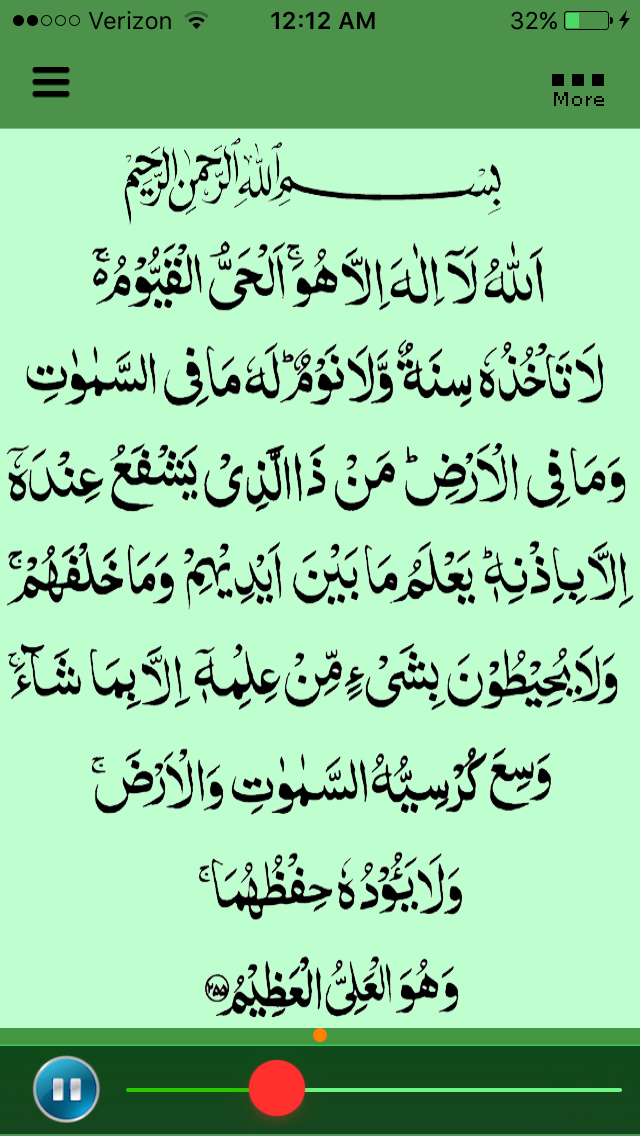 Verizon 12:12 AM 32%
More
بِسْمِ اللهِ الرَّحْمٰنِ الرَّحِيْمِ
اَللّٰهُ لَآ اِلٰهَ اِلَّا هُوَۚ اَلْحَىُّ الْقَيُّوْمُ ەۚ
لَا تَاْخُذُهٗ سِنَةٌ وَّلَا نَوْمٌؕ لَهٗ مَا فِى السَّمٰوٰتِ
وَمَا فِى الْاَرْضِؕ مَنْ ذَا الَّذِىْ يَشْفَعُ عِنْدَهٗۤ
اِلَّا بِاِذْنِهٖؕ يَعْلَمُ مَا بَيْنَ اَيْدِيْهِمْ وَمَا خَلْفَهُمْۚ
وَلَا يُحِيْطُوْنَ بِشَىْءٍ مِّنْ عِلْمِهٖۤ اِلَّا بِمَا شَآءَۚ
وَسِعَ كُرْسِيُّهُ السَّمٰوٰتِ وَالْاَرْضَۚ
وَلَا يَـُٔوْدُهٗ حِفْظُهُمَاۚ
وَهُوَ الْعَلِىُّ الْعَظِيْمُ ﴿۲۵۵﴾